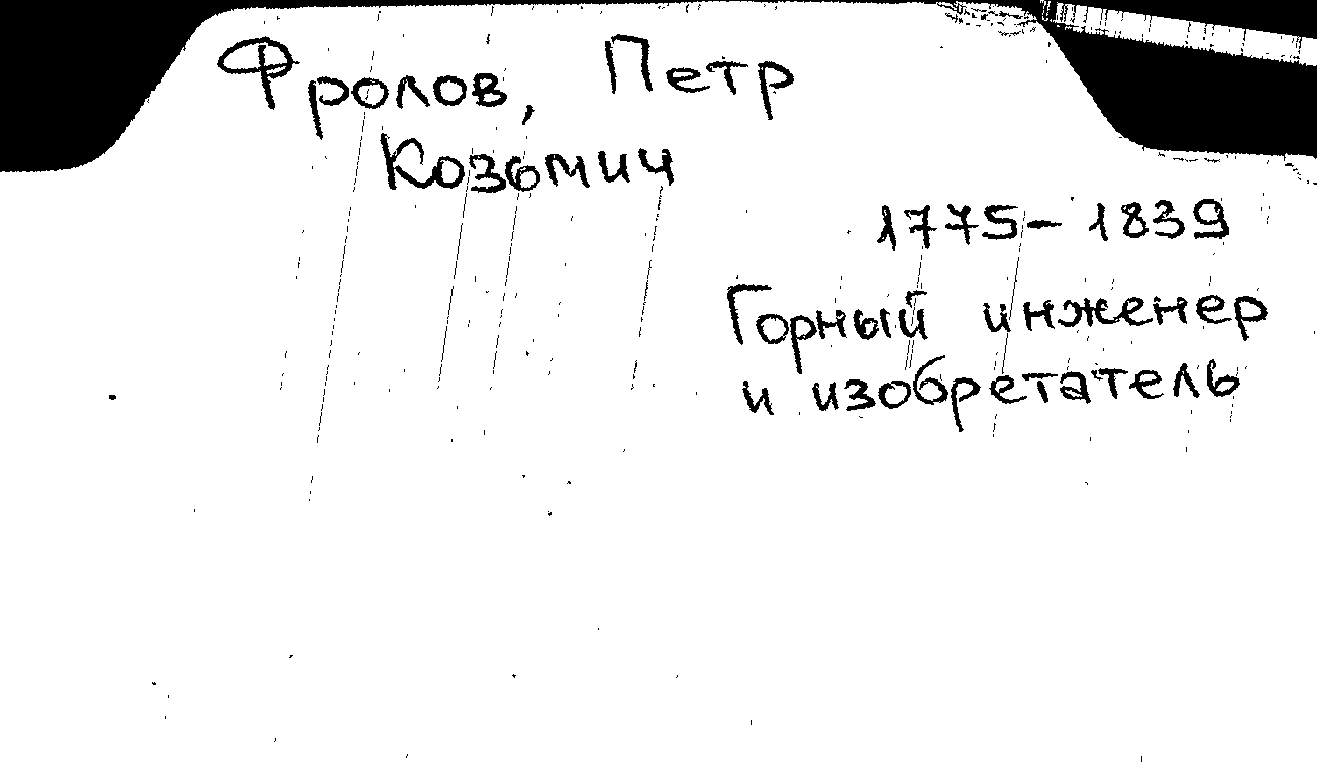 Фролов, Петр
Козьмич
1775-1839
Горный инженер
и изобретатель